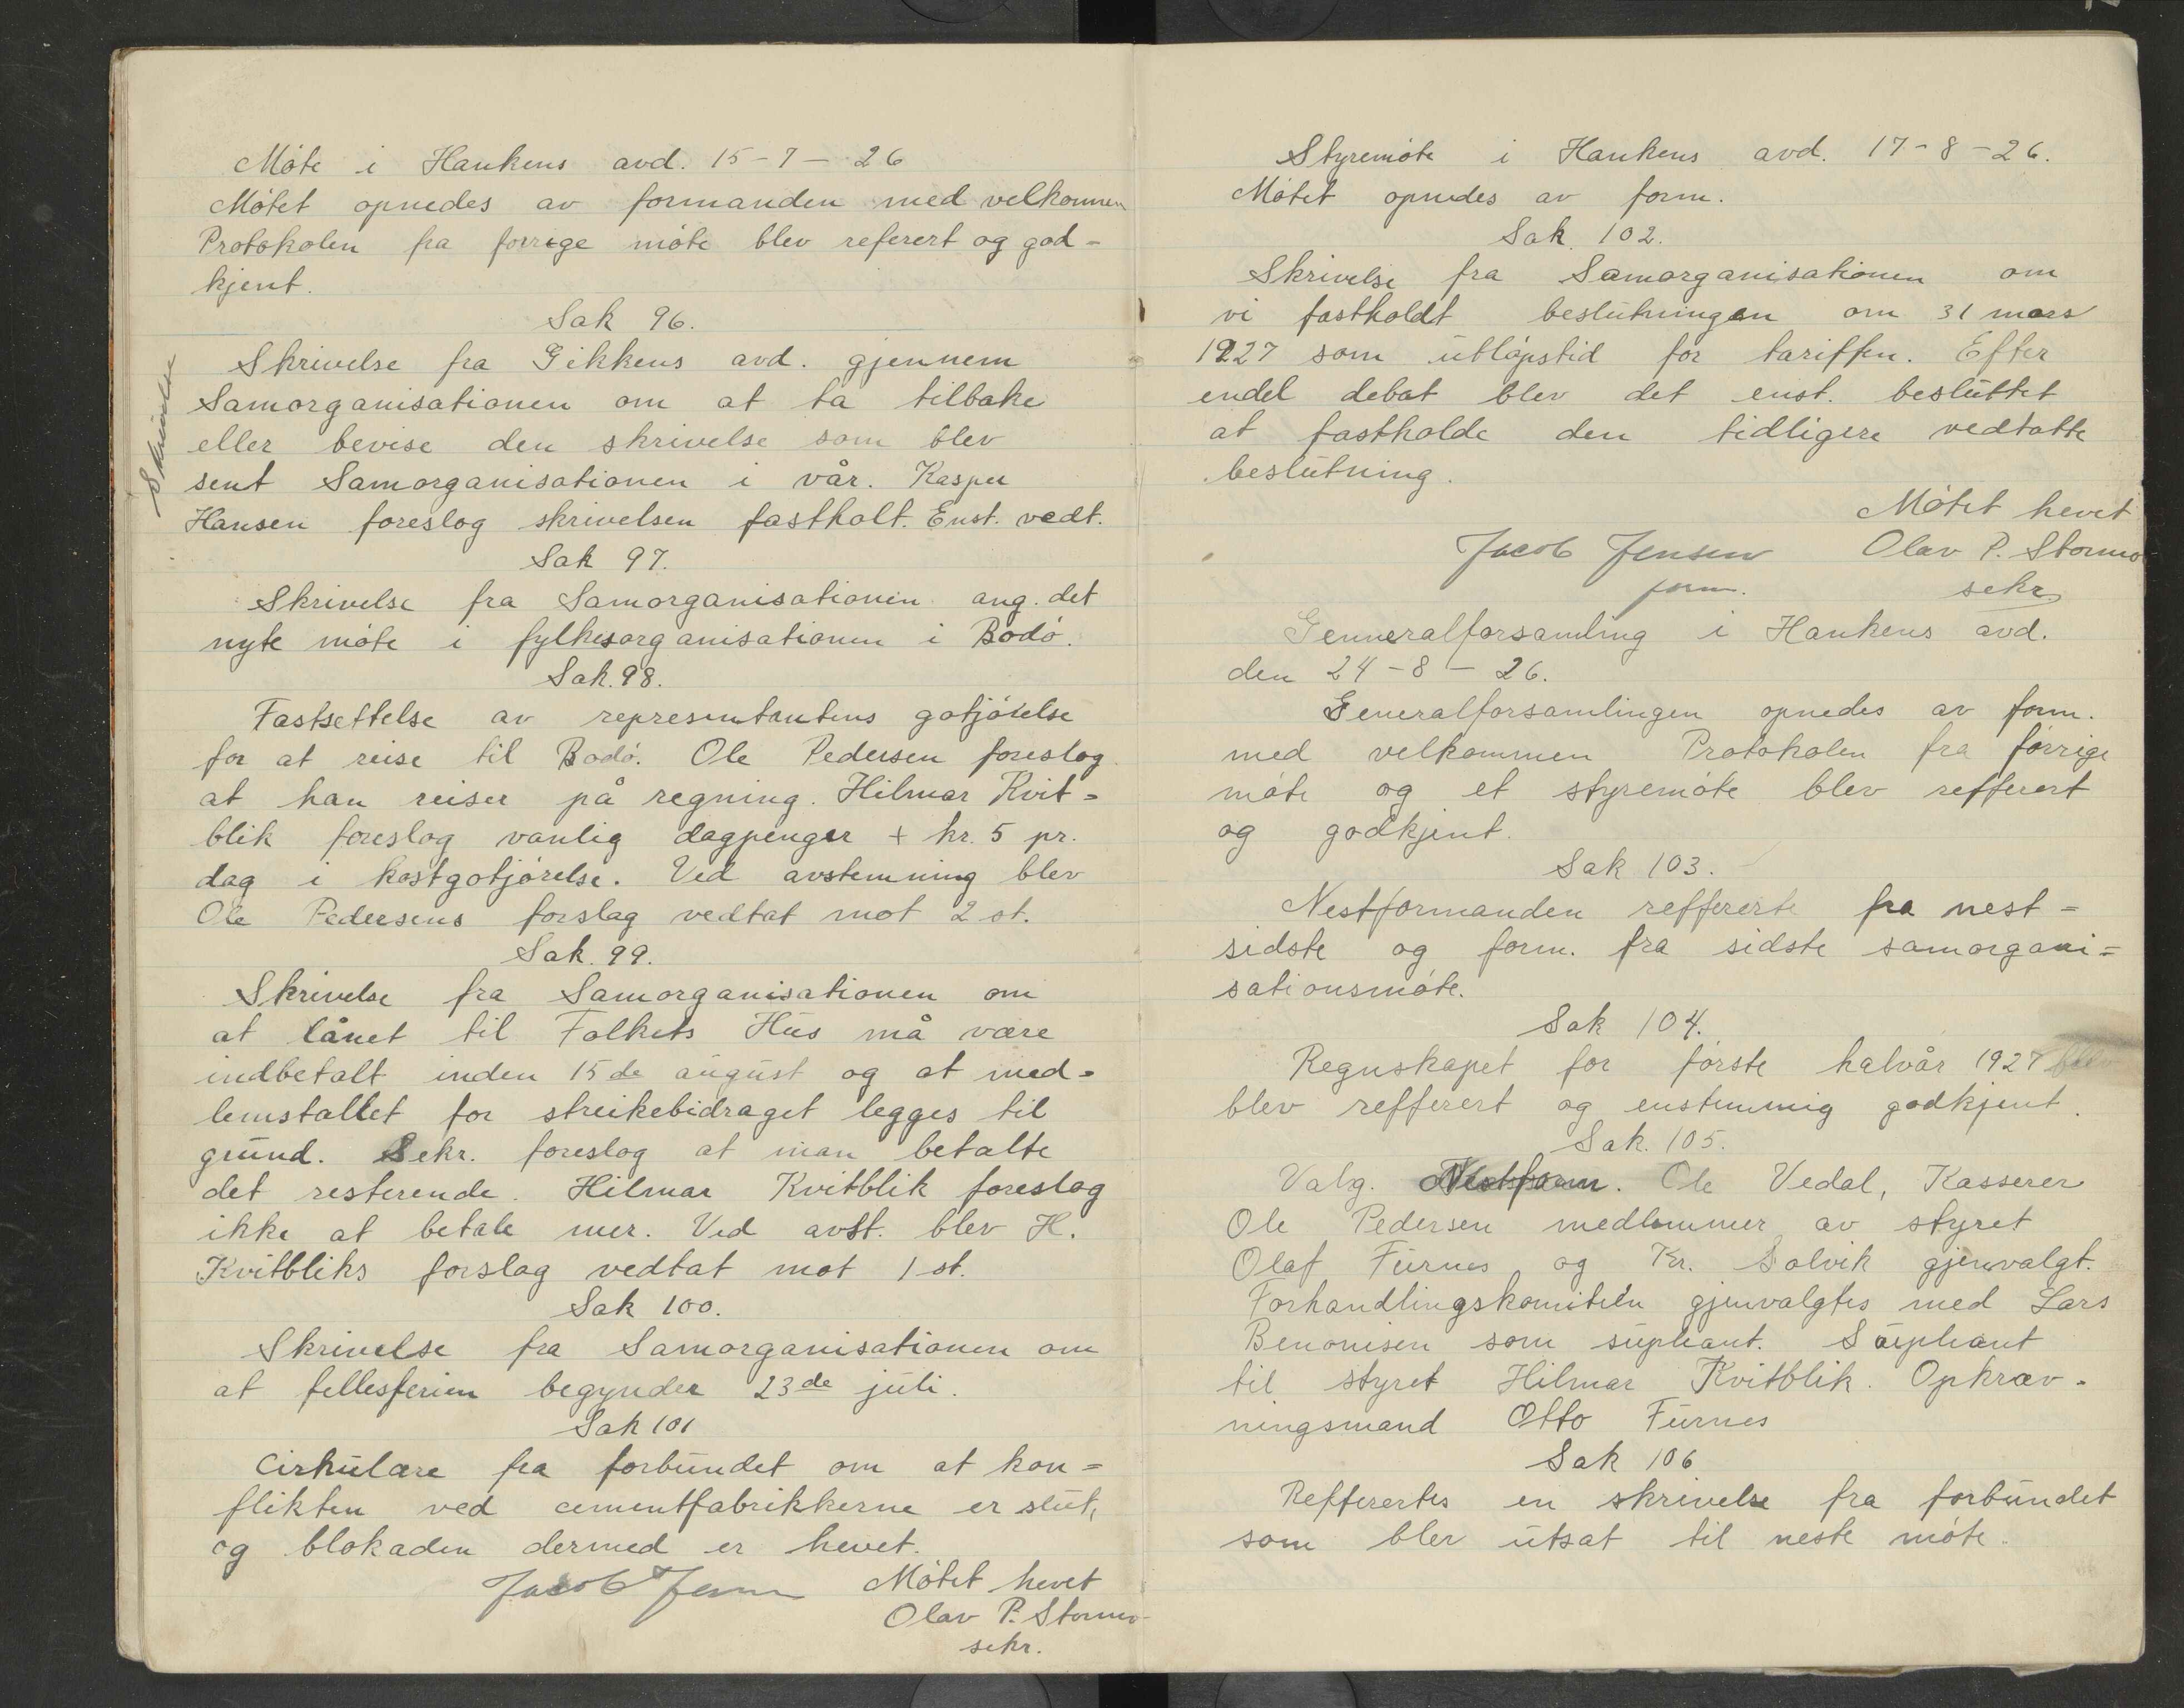 Møte i Hankens avd. 15-7-26
Møtet opnedes av formanden med velkommen
Protokolen fra forrige møte blev referert og god-
kjent.
Sak 96.
Skrivelse fra Gikkens avd. gjennem
Samorganisationen om at ta tilbake
eller bevise den skrivelse som blev
sent Samorganisationen i vår. Kasper
Hansen foreslog skrivelsen fastholt. Enst. vedt.
Skrivelse
Sak 97.
Skrivelse fra Samorganisationen ang. det
nyte møte i fylkesorganisationen i Bodø.
Sak. 98.
Fastsettelse av representantens gotjørelse
for at reise til Bodø. Ole Pedersen foreslog
at han reiser på regning. Hilmar Kvit=
blik foreslog vanlig dagpenger + kr. 5 pr.
dag i kostgotjørelse. Ved avstemning blev
Ole Pedersens forslag vedtat mot 2 st.
Sak. 99.
Skrivelse fra Samorganisationen om
at lånet til Folkets Hus må være
indbetalt inden 15de august og at med-
lemstallet for streikebidraget legges til
grund. Sekr. foreslog at man betalte
det resterende. Hilmar Kvitblik foreslog
ikke at betale mer. Ved avst. blev H.
Kvitbliks forslag vedtat mot 1 st.
Sak 100.
Skrivelse fra Samorganisationen om
at fellesferien begynder 23de juli.
Sak 101
Cirkulære fra forbundet om at kon=
flikten ved cementfabrikkerne er slut,
og blokaden dermed er hevet.
Jacob Jensen Møtet hevet
Olav P. Stormo
sekr.
Styremøte i Hankens avd. 17-8-26.
Møtet opnedes av form.
Sak. 102.
Skrivelse fra Samorganisationen om
vi fastholdt beslutningen om 31 mars
1927 som utløpstid for tariffen. Efter
endel debat blev det enst. besluttet
at fastholde den tidligere vedtatte
beslutning.
Møtet hevet
Jacob Jensen Olav P. Stormo
form. sekr.
Genneralforsamling i Hankens avd.
den 24-8-26.
Generalforsamlingen opnedes av form.
med velkommen Protokolen fra forrige
møte og et styremøte blev refferert
og godkjent.
Sak 103.
Nestformanden reffererte fra nest=
sidste og form. fra sidste samorgani=
sationsmøte.
Sak 104.
Regnskapet for første halvår 1927
blev refferert og enstemmig godkjent.
Sak. 105.
Valg. Nestform. Ole Vedal, Kasserer
Ole Pedersen medlemmer av styret
Olaf Furnes og Kr. Solvik gjenvalgt.
Forhandlingskomiteen gjenvalgtes med Lars
Benonisen som supleant. Supleant
til styret Hilmar Kvitblik. Opkræv-
ningsmand Otto Furnes
Sak 106
Reffertes en skrivelse fra forbundet
som blev utsat til neste møte.